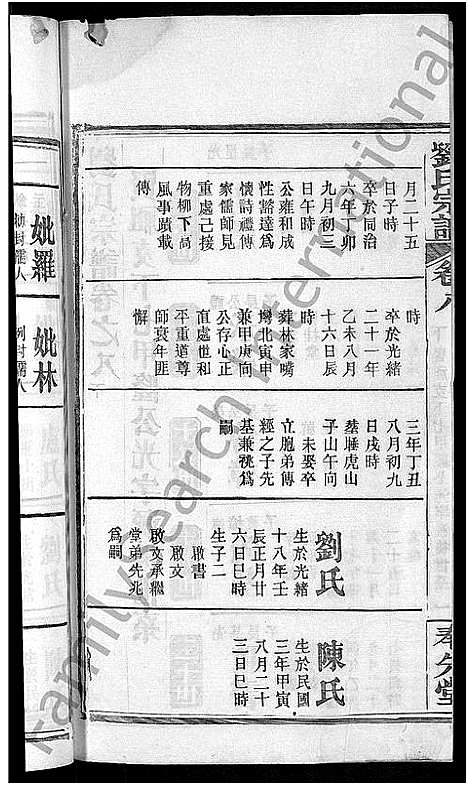 劉氏宗譜
卷八
奉先堂
月二十五
日子時
卒於同治
六年丁卯
九月初三
日午時
公雍和成
性豁達爲
懷詩禮傳
家儒師見
重處己接
物柳下高
風事蹟載
傳
時
卒於光緒
二十一年
乙未八月
十六日辰
時
葬林家嘴
塆北寅申
兼甲庚向
公存心正
直處世和
平重道尊
師衰年匪
懈
三年丁丑
八月初九
日戌時
葬睡虎山
子山午向
未娶卒
立胞弟傳
經之子先
基兼祧爲
嗣
劉氏
生於光緒
十八年壬
辰正月廿
六日巳時
生子二
啟書
啟文
啟文承繼
堂弟先兆
爲嗣
陳氏
生於民國
三年甲寅
八月二十
三日巳時
妣羅
勅封孺人
妣林
例封孺人
familysearch international